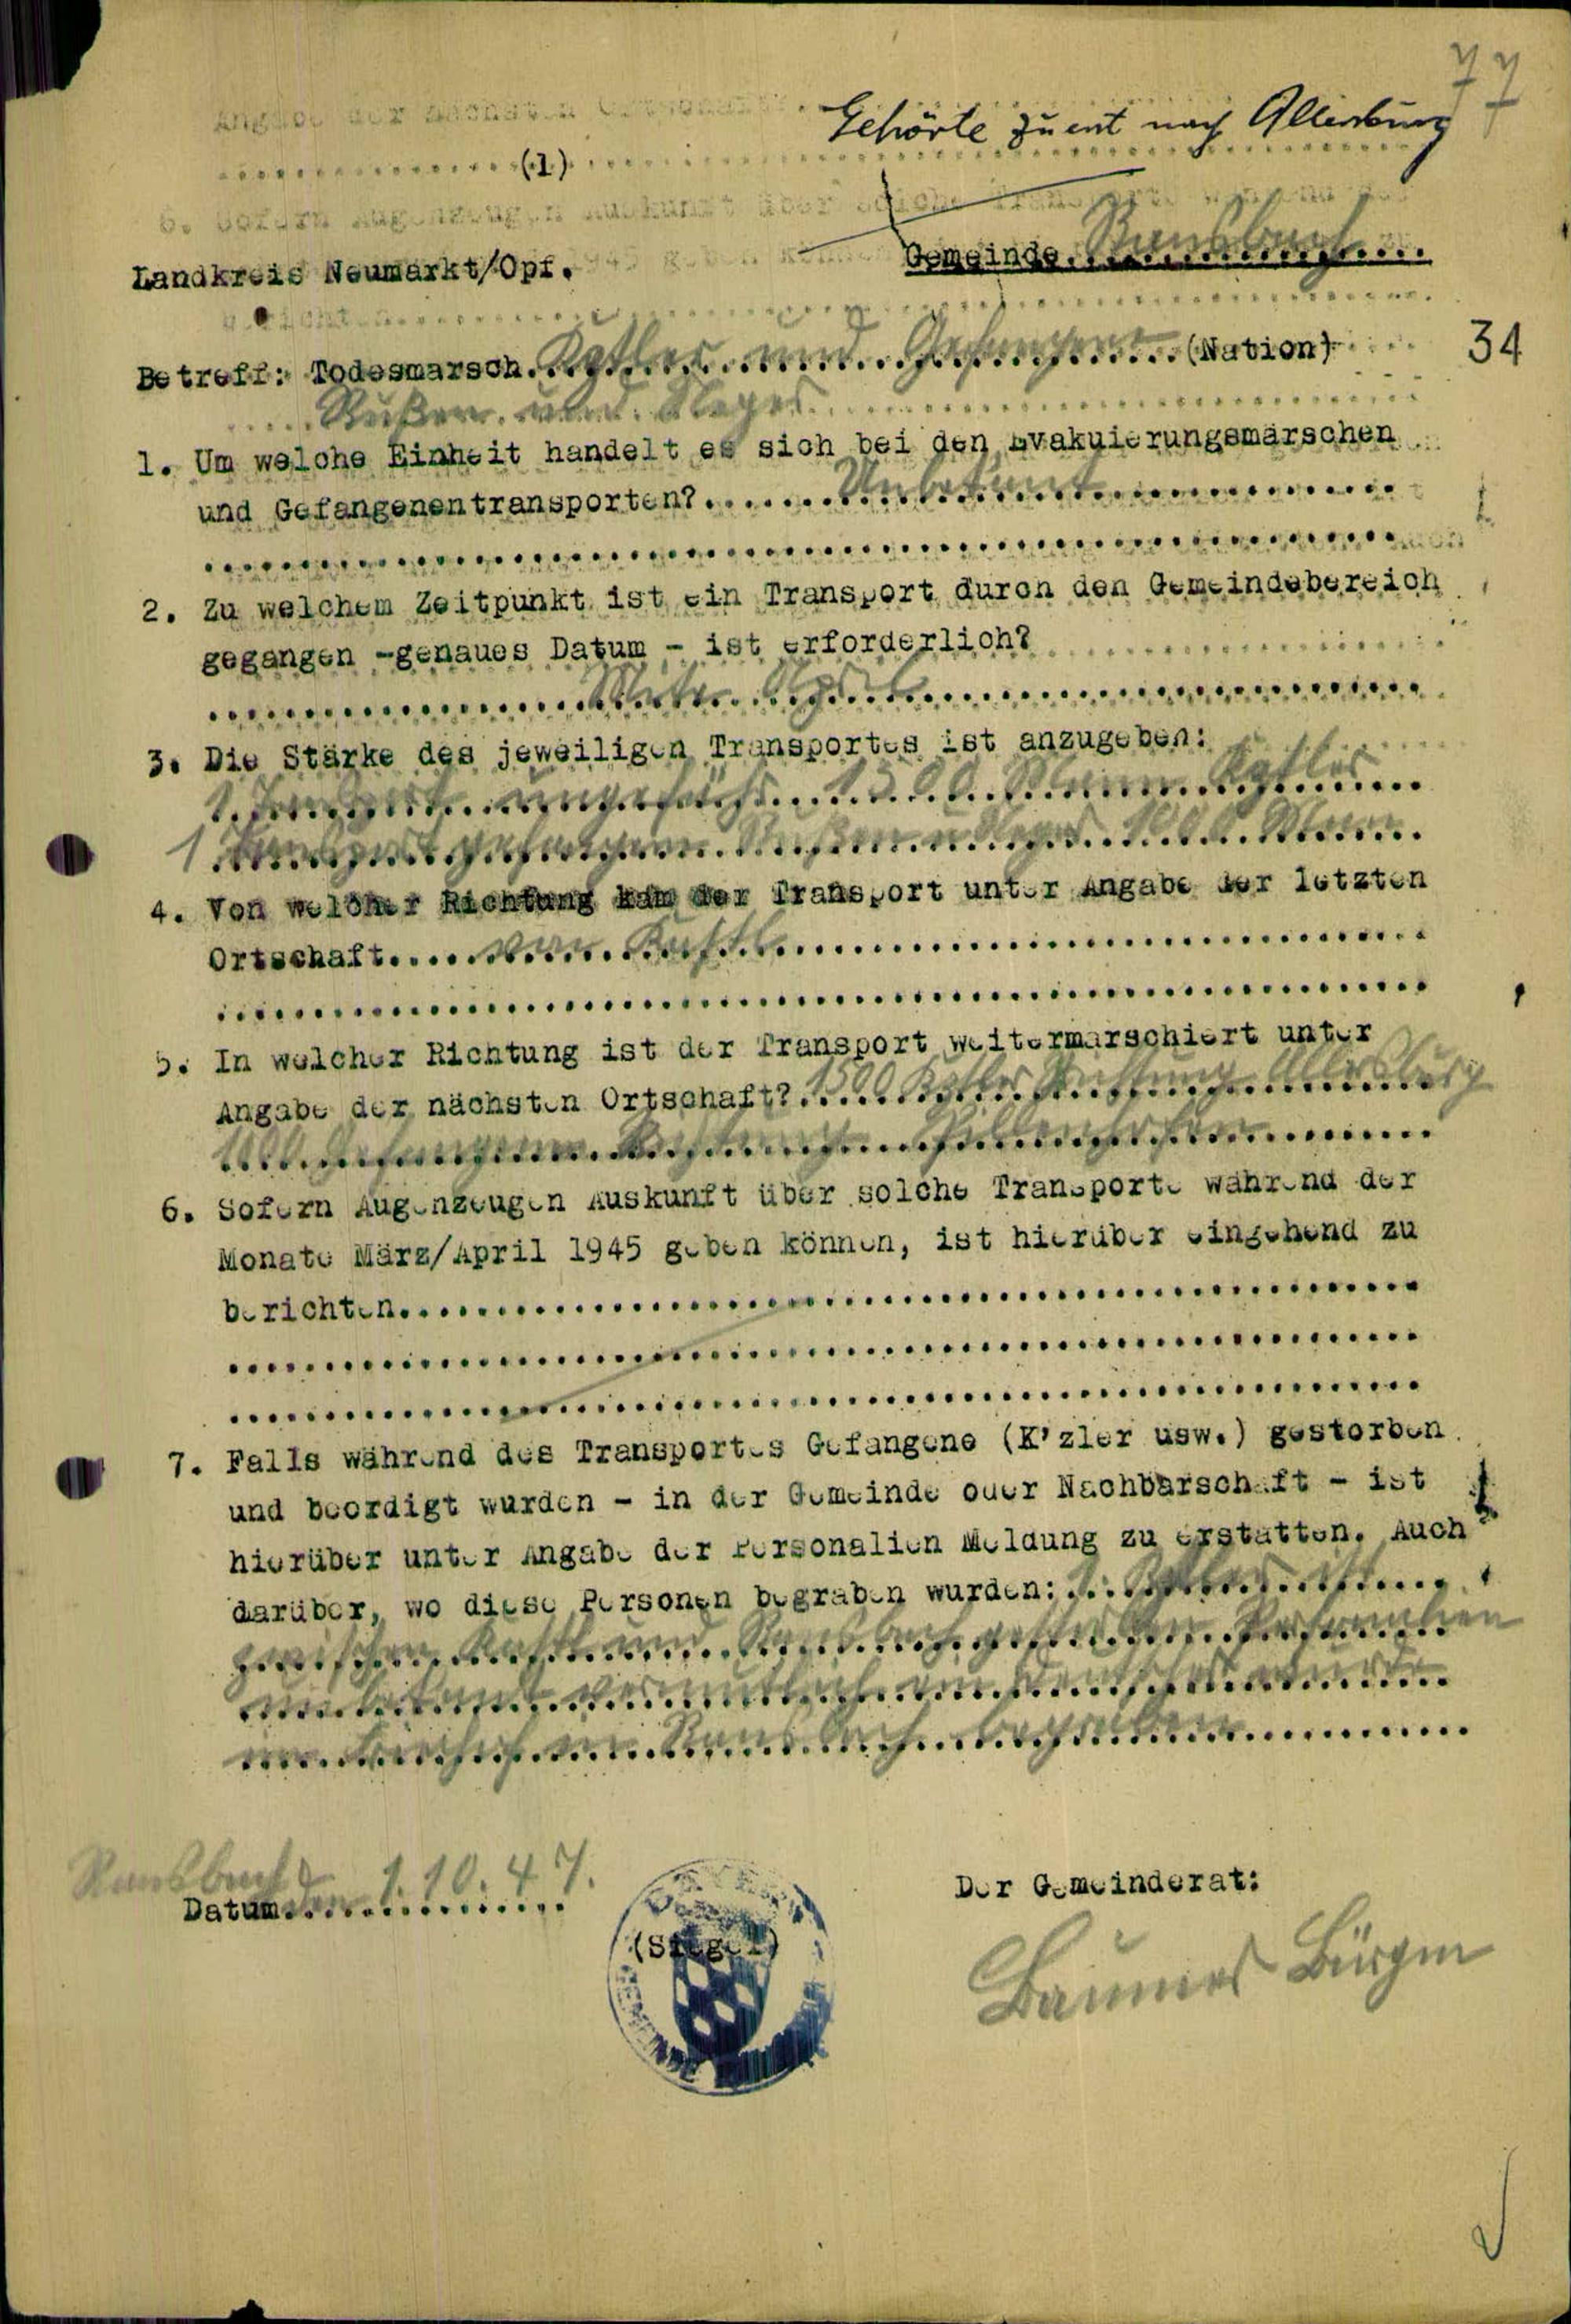 77
Gehörte zuerst nach Allersburg
(1)
Landkreis Neumarkt/Opf.
Gemeinde Ransbach
34
Betreff: Todesmarsch Katler und Gefangene (Nation)
Rußen und Neger
1. Um welche Einheit handelt es sich bei den Evakuierungsmärschen
und Gefangenentransporten? Unbekannt
2. Zu welchem Zeitpunkt ist ein Transport durch den Gemeindebereich
gegangen -genaues Datum - ist erforderlich?
Mitte April
3. Die Stärke des jeweiligen Transportes ist anzugeben:
1 Transport ungefähr 1500 Mann Katler
1 Transport gefangene Rußen u Neger 1000 Mann
4. Von welcher Richtung kam der Transport unter Angabe der letzten
Ortschaft von Kastl
5. In welcher Richtung ist der Transport weitermarschiert unter
Angabe der nächsten Ortschaft? 1500 Katler Richtung Allersburg
1000 Gefangene Richtung Pillenhofen
6. Sofern Augenzeugen Auskunft über solche Transporte während der
Monate März/April 1945 geben können, ist hierüber eingehend zu
berichten
7. Falls während des Transportes Gefangene (K'zler usw.) gestorben
und beerdigt wurden - in der Gemeinde oder Nachbarschaft - ist
hierüber unter Angabe der Personalien Meldung zu erstatten. Auch
darüber, wo diese Personen begraben wurden: 1 Katler ist
zwischen Kastl und Ransbach gestorben Personalien
unbekannt vermutlich ein Deutscher wurde
im Friehof in Ransbach begraben
Ransbach
Datum den 1.10.47.
(Siegel)
GEMEINDE
Der Gemeinderat:
Baumer Bürgm